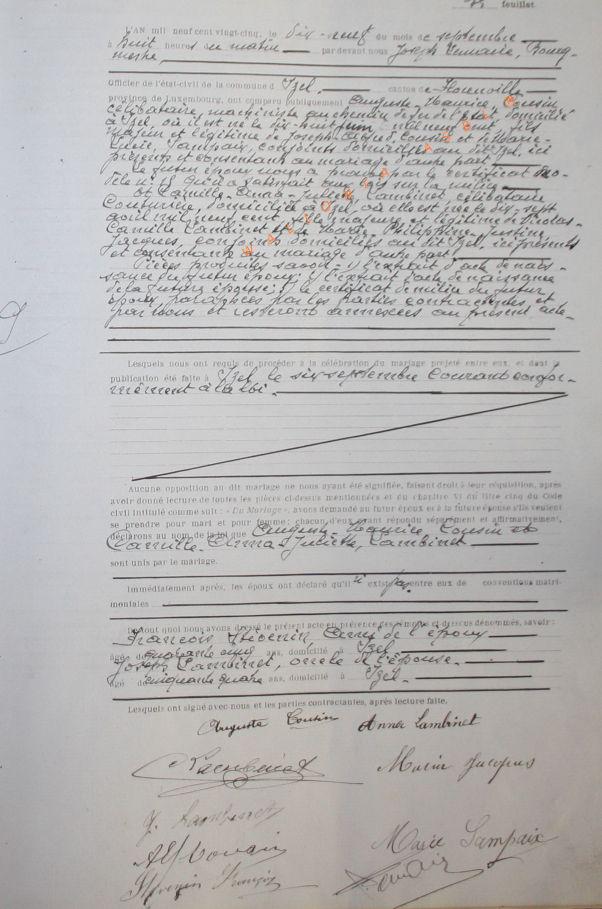 feuillet
L'AN mil neuf cent vingt-cinq, le dix-neuf du mois de septembre
à huit heures du matin par devant nous Joseph Lemaire, Bourg-
mestre,
Officier de l'état-civil de la commune d'Izel, canton de Florenville
province de Luxembourg, ont comparu publiquement Auguste-Maurice Cousin
célibataire, machiniste au chemin de fer de l'Etat, domicilié
à Izel, où il est né le dix-huit juin mil neuf cent, fils
majeur et légitime de Joseph Cousin et de Marie-
Sampaix, conjoints domiciliés au dit Izel, ici
présents et consentant au mariage d'autre part
Le futur époux nous a prouvé par le certificat mo-
dèle n° qu'il a satisfait aux lois sur la milice
Et Camille-Anna-Juliette Lambinet, célibataire
Couturière, domiciliée à Izel, où elle est née le dix-sept
avril mil neuf cent, fille majeure et légitime de Nicolas-
Camille Lambinet et de Marie-Philippine-Justine
Jacques, conjoints domiciliés au dit Izel, ici présents
et consentant au mariage d'autre part
Pièces produites savoir: 1) l'extrait d'acte de nais-
sance du futur époux; 2) l'extrait d'acte de naissance
de la future épouse; 3) le certificat de milice du futur
époux, paraphées par les parties contractantes et
par nous et resteront annexées au présent acte
Lesquels nous ont requis de procéder à la célébration du mariage projeté entre eux, et dont la
publication été faite à Izel le six septembre courant confor-
mément à la loi.
Aucune opposition au dit mariage ne nous ayant été signifiée, faisant droit à leur réquisition, après
avoir donné lecture de toutes les pièces ci-dessus mentionnées et du chapitre VI du titre cinq du Code
civil intitulé comme suit: « Du Mariage », avons demandé au futur époux et à la future épouse s'ils veulent
se prendre pour mari et pour femme; chacun d'eux ayant répondu séparément et affirmativement,
déclarons au nom de la loi que Auguste Maurice Cousin et
Camille-Anna-Juliette, Lambinet
sont unis par le mariage.
Immédiatement après, les époux ont déclaré qu'il n'existe pas entre eux de conventions matri-
moniales
De tout quoi nous avons dressé le présent acte en présence des témoins ci-dessus dénommés, savoir:
François Thévenin, ami de l'époux
âgé de quarante cinq ans, domicilié à Izel
Joseph Lambinet, oncle de l'épouse
âgé de cinquante quatre ans, domicilié à Izel
Lesquels ont signé avec nous et les parties contractantes, après lecture faite.
Auguste Cousin Anna Lambinet
Lambinet Marie Jacques
J. Lambinet
Alf Cousin Marie Sampaix
Thévenin François